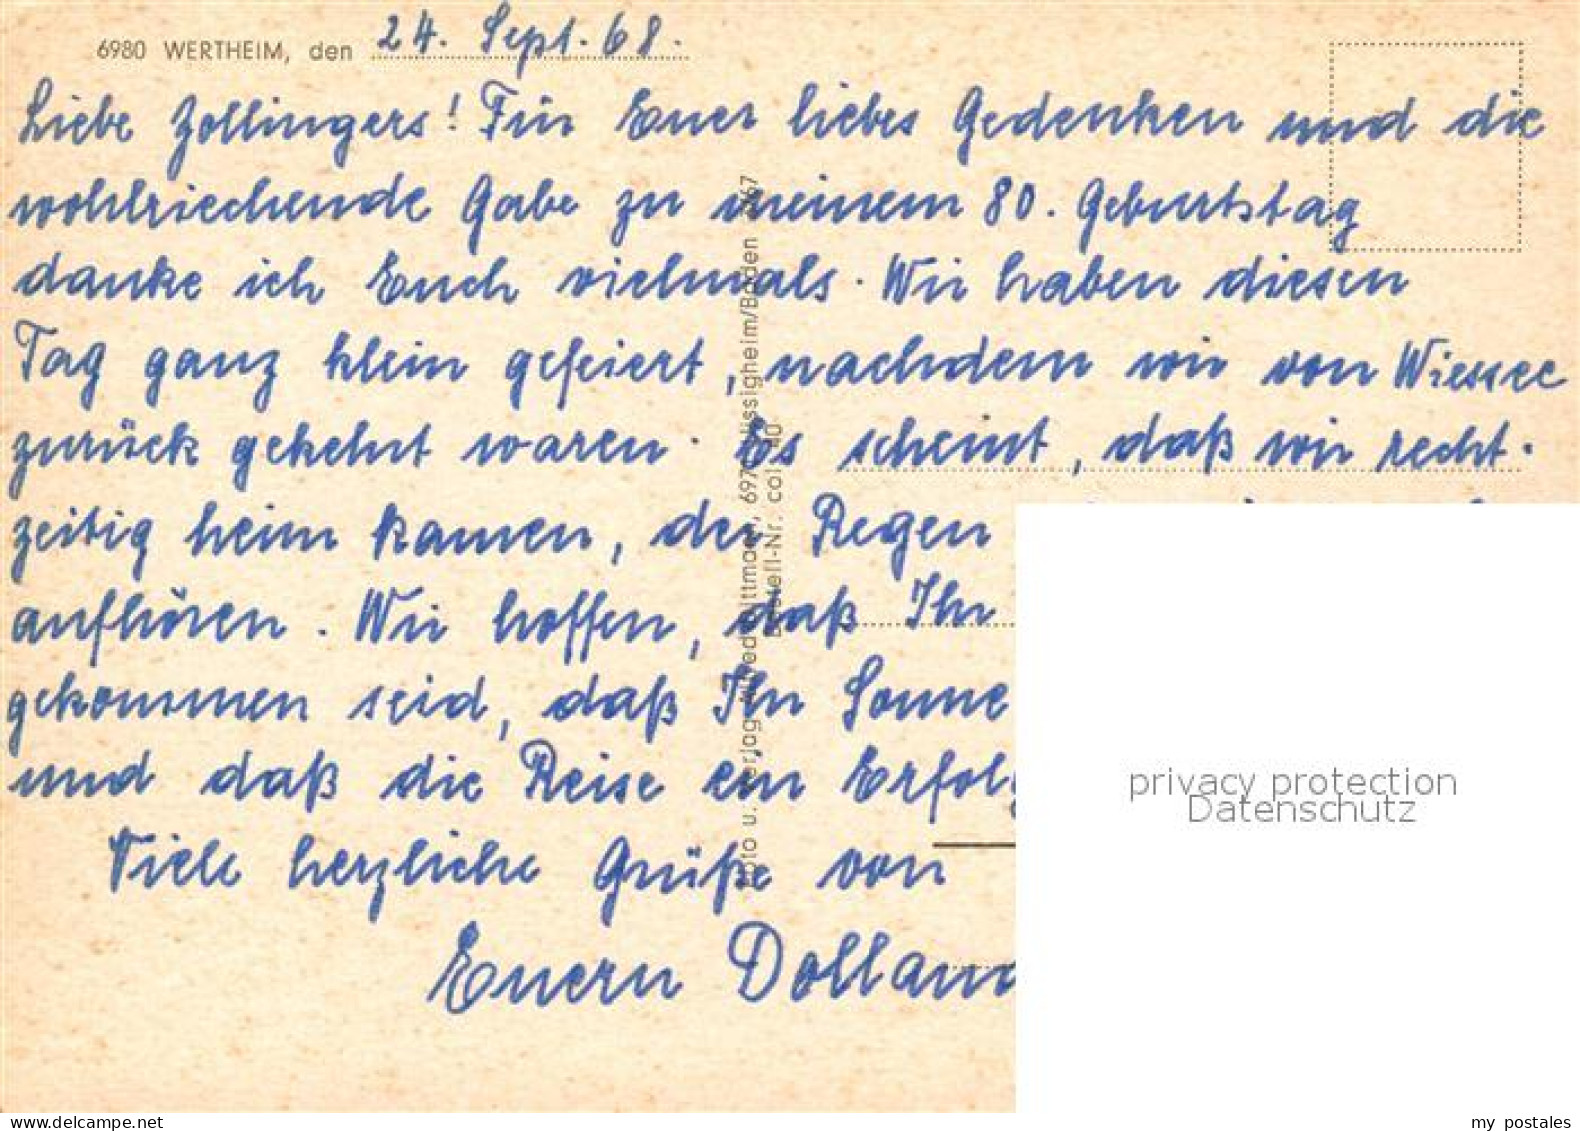 6980 WERTHEIM, den 24. Sept. 68.
Liebe Zollingers! Für Euer liebes Gedenken und die
wohlriechende Gabe zu meinem 80. Geburtstag
danke ich Euch vielmals. Wir haben diesen
Tag ganz klein gefeiert, nachdem wir von Wiessee
zurück gekehrt waren. Es scheint, daß wir recht-
zeitig heim kamen, der Regen
aufhören. Wir hoffen, daß Ihr
gekommen seid, daß Ihr Sonne
und daß die Reise ein Erfolg
Viele herzliche Grüße von
Euern Dolland
Foto u. Verlag Bestell-Nr.
privacy protection
Datenschutz
www.delcampe.net
my_postales